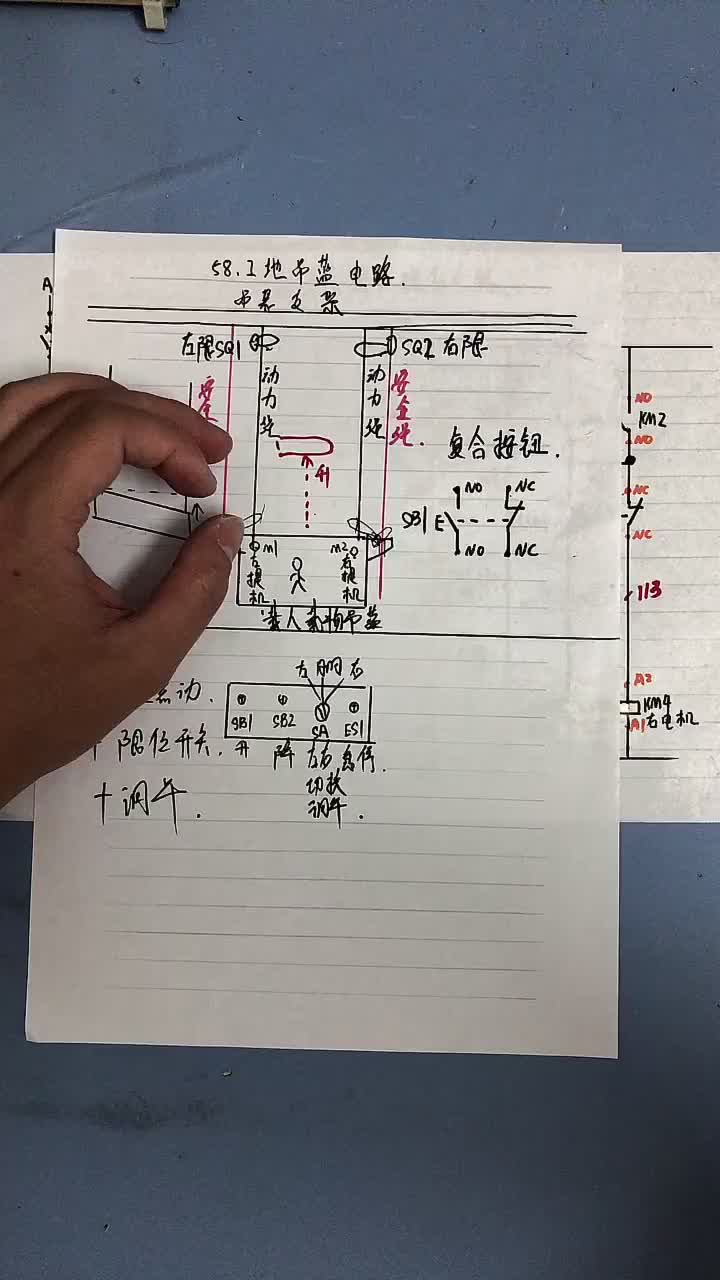 58.工地吊蓝电路.
吊蓝支架
左限SQ1
SQ2右限
A
动力绳
动力绳
安全
安全绳.
升
复合按钮.
NO
NC
SB1 E
NO
NC
M1
左提机
M2
右提机
载人载物吊蓝
点动.
限位开关.
十调平.
左 同 右
SB1
SB2
SA
ES1
升
降
左右
急停.
切换
调平.
NO
KM2
NO
NC
NC
113
A2
KM4
A1
右电机